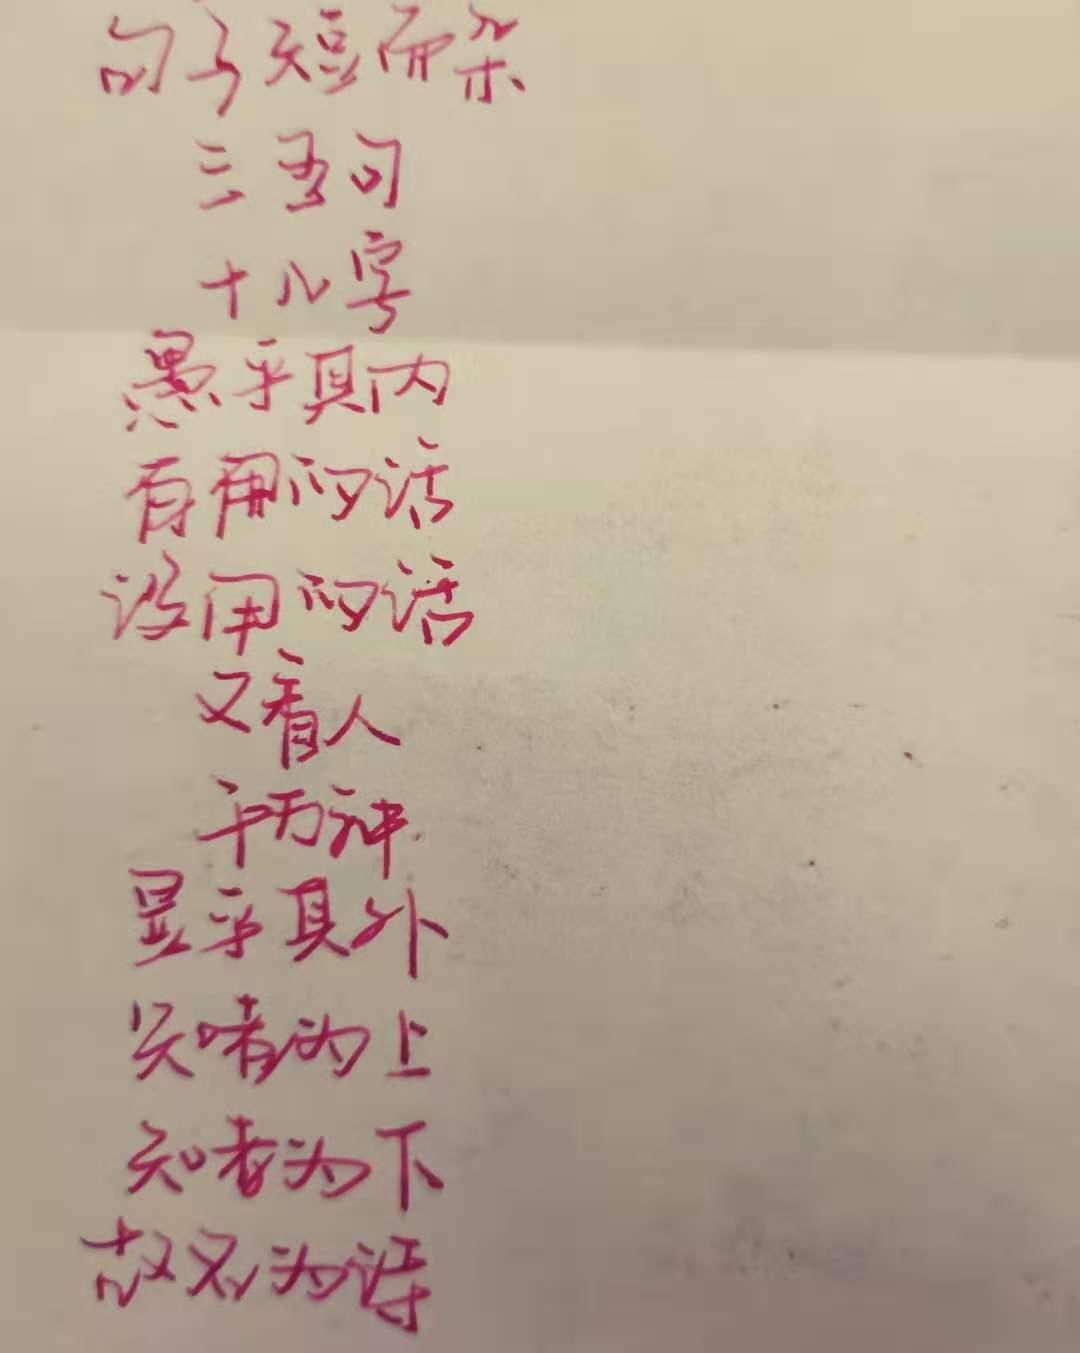 句子短而杂
三五句
十八字
愚乎其内
有用的话
没用的话
又看人
千万种
显乎其外
笑者为上
知者为下
故名为诗